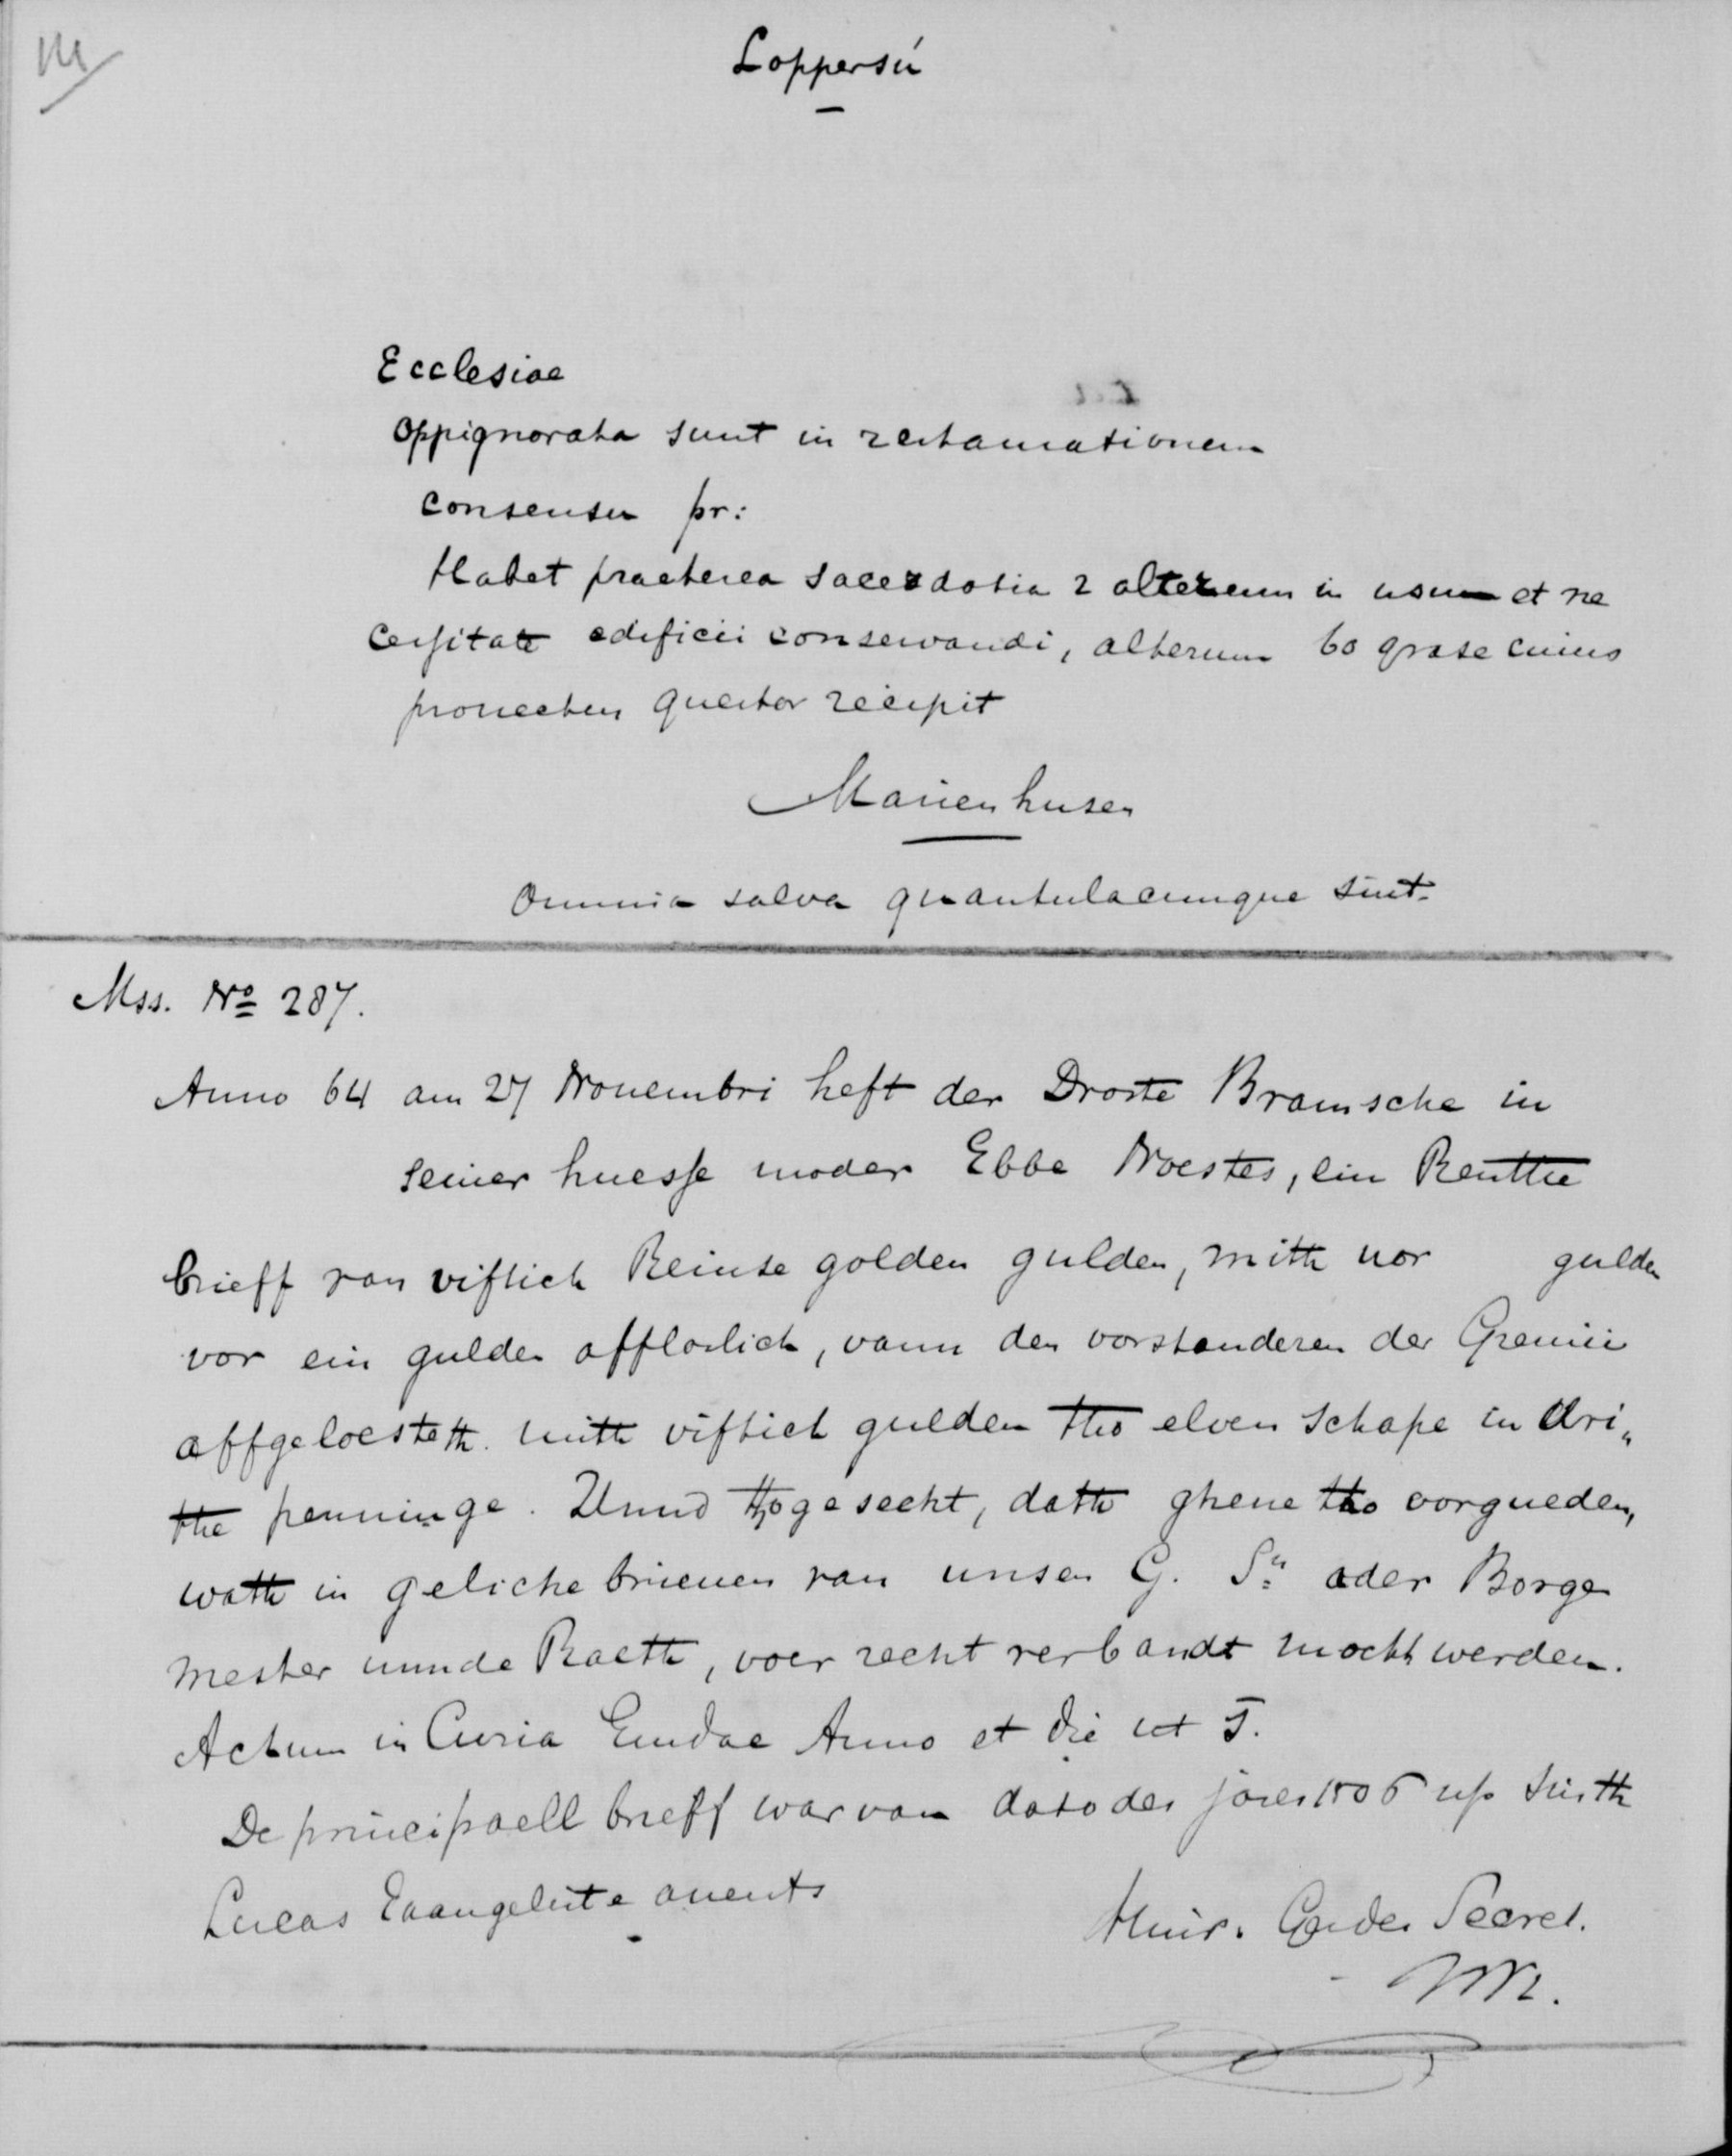 Loppersú
Ecclesiae
oppignorata sunt in restaurationem
consensu pr:
Habet praeterea sacerdotia 2 alterum in usum et ne
cessitate edificii conservandi, alterum 60 grase cuius
prouectus questor recepit
Marienhusen
Omnia salva quantulacumque sint.
Mss. No 287.
Anno 64 am 27 Nouembri heft der Droste Bramsche in
seiner huesse moder Ebbe Noestes, ein Renthe
brieff van viftich Reinse golden gulden, mith vor gulden
vor ein gulden affloslich, vann den vorstanderen der
affgeloesteth. mith viftich gulden tho elven schape in dri„
the penninge. Unnd thogesecht, dath ghene tho vorgueden,
wath in geliche brieuen van unsen G. oder Borge
mester unnde Raeth, voer recht verbandt mocht werden.
Actum in Curia Emdae Anno et die ut S.
De principaell brieff war van dato des jares 1506 up sinth
Lucas Evangeliste auents
Secret.